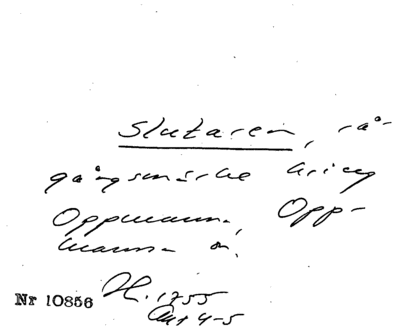 Slutaren, rå-
gångsmärke kring
Oppmanna, Opp-
manna sn.
Nr 10856
H. 1755
Akt 4-5